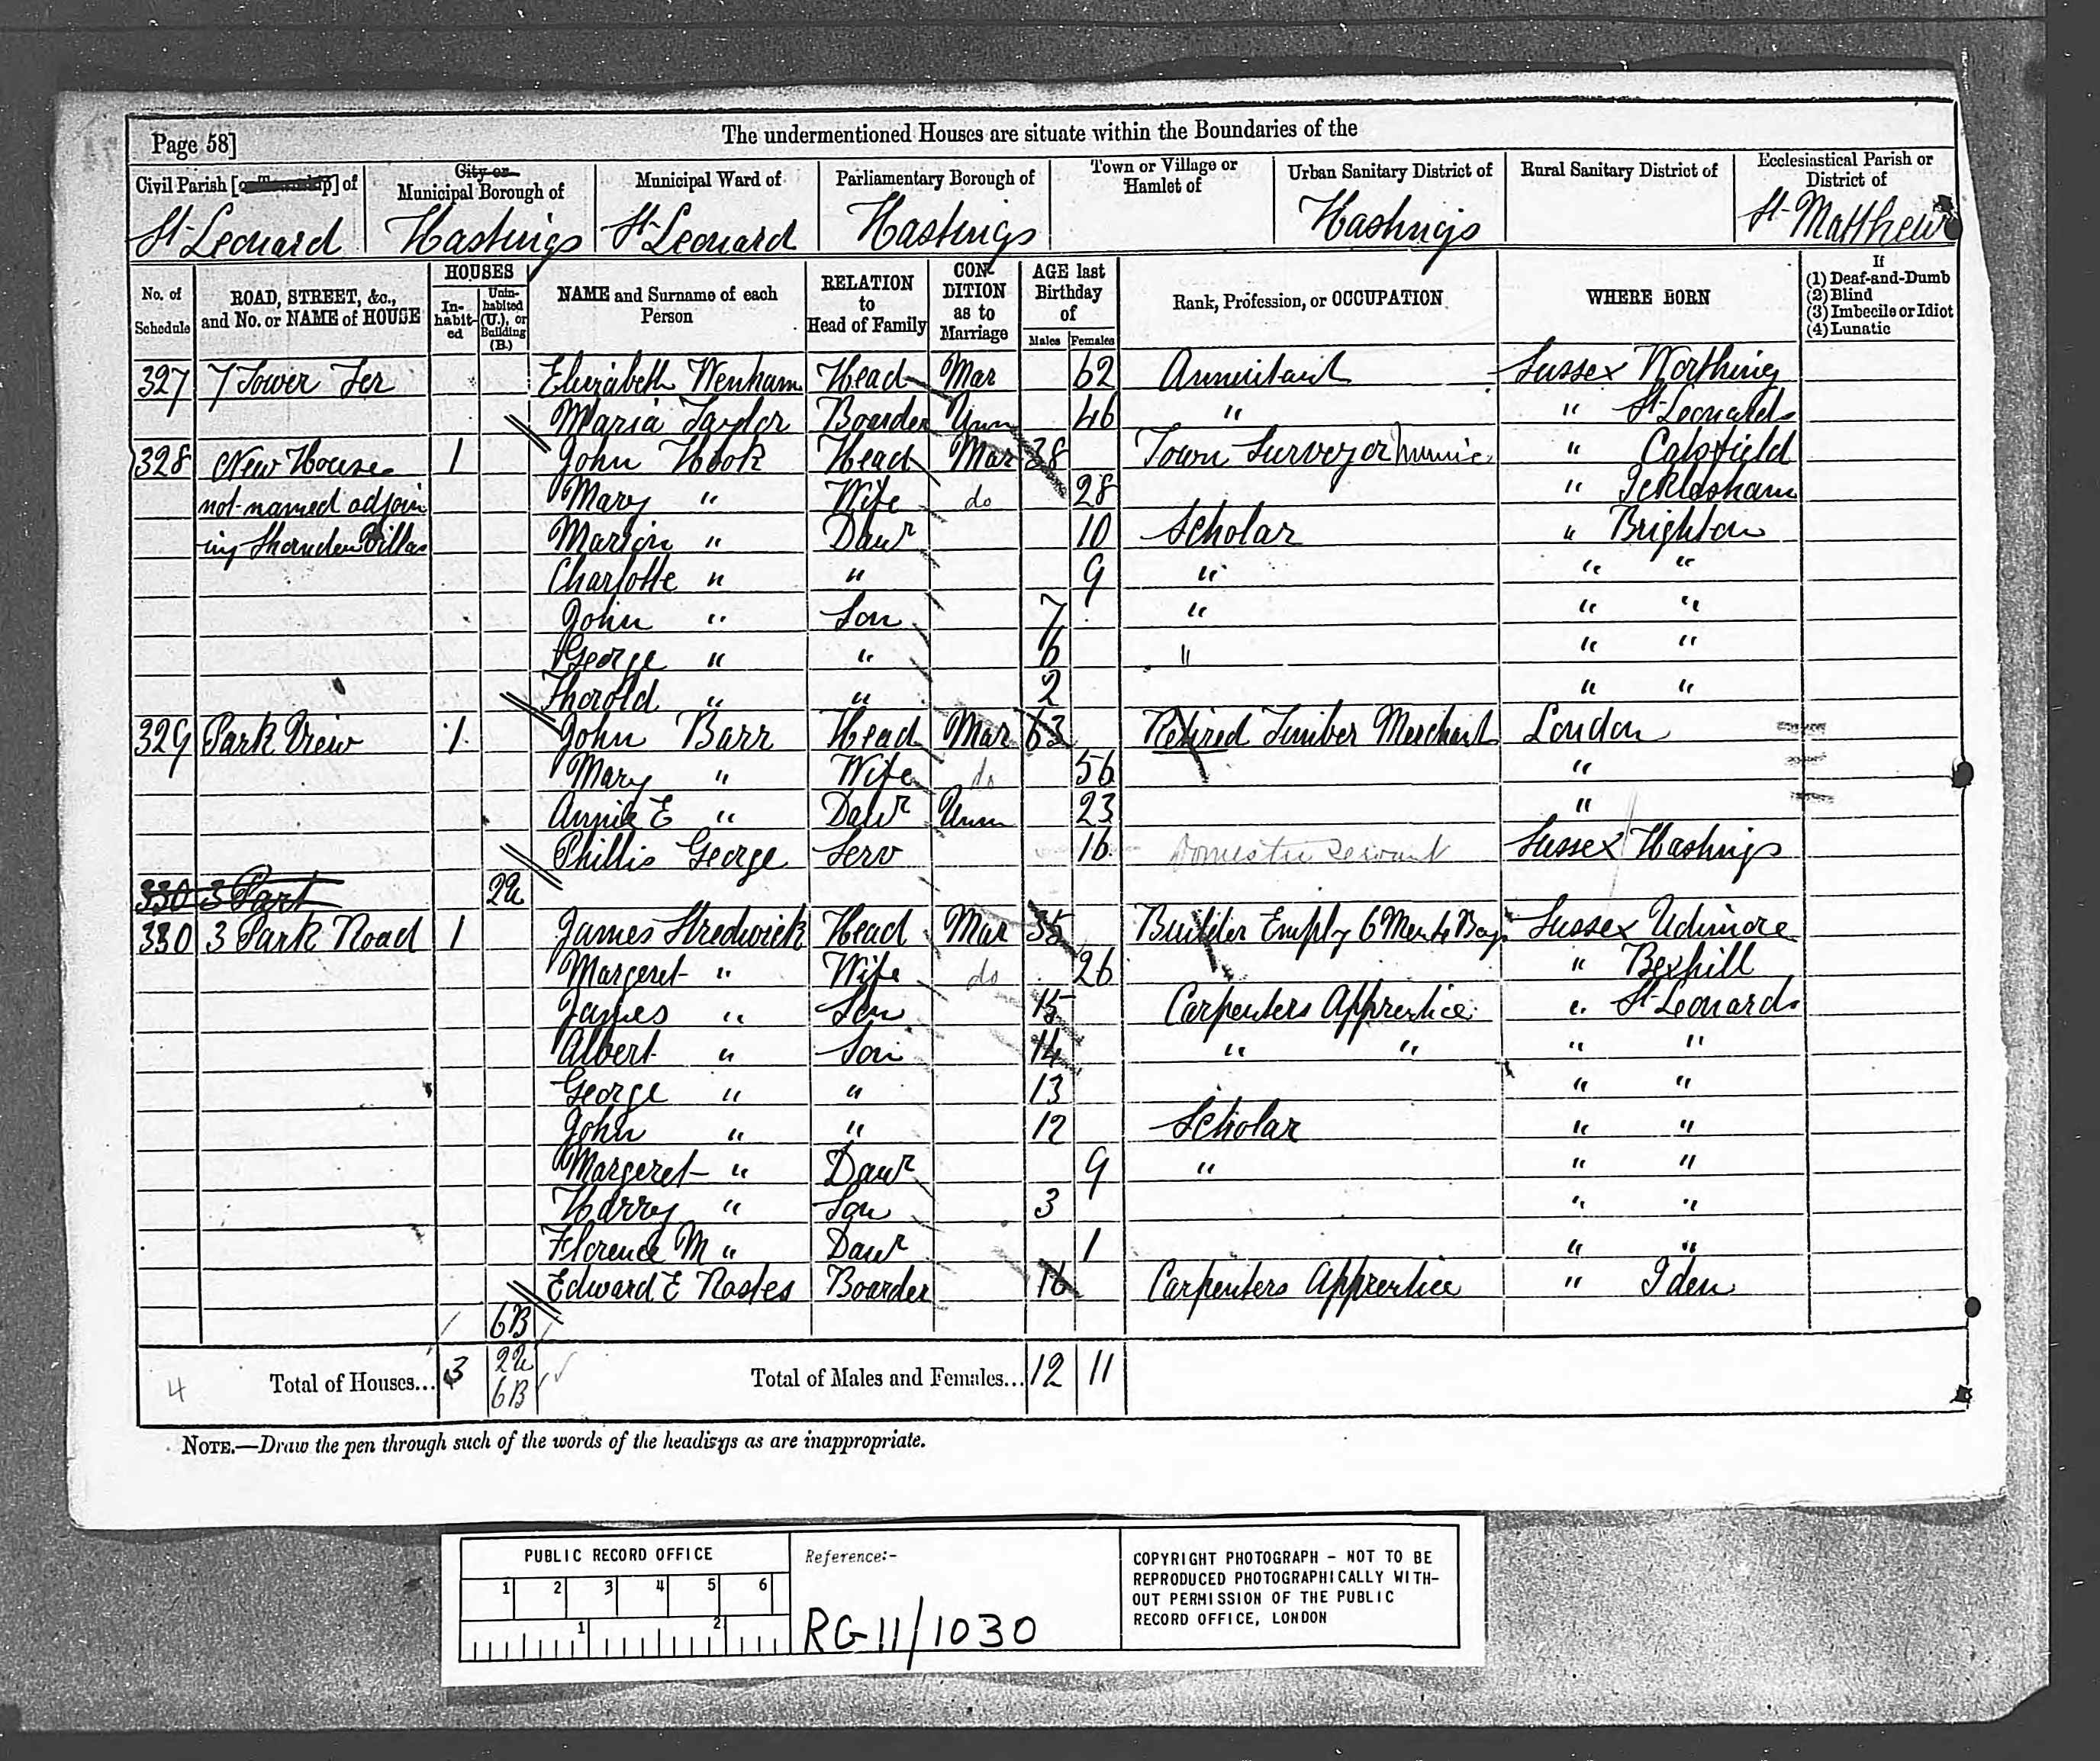 Page 58]
The undermentioned Houses are situate within the Boundaries of the
Civil Parish [or Township] of
City or Municipal Borough of
Municipal Ward of
Parliamentary Borough of
Town or Village or Hamlet of
Urban Sanitary District of
Rural Sanitary District of
Ecclesiastical Parish or District of
St Leonard Hastings St Leonard Hastings Hastings St Matthew
No. of Schedule
ROAD, STREET, &c., and No. or NAME of HOUSE
HOUSES
In-habit-ed
Unin-habited (U.), or Building (B.)
NAME and Surname of each Person
RELATION to Head of Family
CON-DITION as to Marriage
AGE last Birthday of
Males Females
Rank, Profession, or OCCUPATION
WHERE BORN
If
(1) Deaf-and-Dumb
(2) Blind
(3) Imbecile or Idiot
(4) Lunatic
327 7 Tower Ter Elizabeth Wenham Head Mar 62 Annuitant Sussex Worthing
Maria Taylor Boarder Unm 46 " " St Leonards
328 New House 1 John Hook Head Mar 38 Town Surveyor " Catsfield
not named adjoin Mary " Wife do 28 " Icklesham
ing Villas Marion " Daur 10 Scholar " Brighton
Charlotte " " 9 " " "
John " Son 7 " " "
George " " 6 " " "
Thorold " " 2 " "
329 Park View 1 John Barr Head Mar 63 Retired Timber Merchant London
Mary " Wife do 56 "
Annie E " Daur Unm 23 "
Phillis George Serv 16 Domestic Servant Sussex Hastings
330 3 Part 2u
330 3 Park Road 1 James Stredwick Head Mar 35 Builder Emply 6 Men 4 Boys Sussex Udimore
Margeret " Wife do 26 " Bexhill
James " Son 15 Carpenters Apprentice " St Leonards
Albert " Son 14 " " " "
George " " 13 " "
John " " 12 Scholar " "
Margeret " Daur 9 " " "
Harry " Son 3 " "
Florence M " Daur 1 " "
Edward E Boarder 16 Carpenters Apprentice " Iden
6B
4 Total of Houses... 3 2u 6B Total of Males and Females... 12 11
NOTE.—Draw the pen through such of the words of the headings as are inappropriate.
PUBLIC RECORD OFFICE
1 2 3 4 5 6
1 2
Reference:-
RG 11/1030
COPYRIGHT PHOTOGRAPH - NOT TO BE
REPRODUCED PHOTOGRAPHICALLY WITH-
OUT PERMISSION OF THE PUBLIC
RECORD OFFICE, LONDON